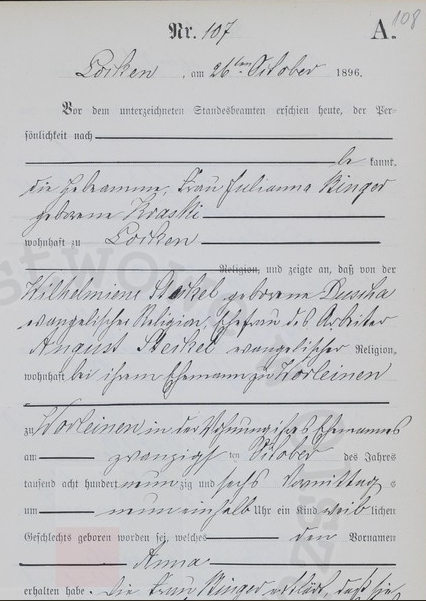 108
Nr. 107 A.
Locken, am 26ten October 1896.
Vor dem unterzeichneten Standesbeamten erschien heute, der Per-
sönlichkeit nach
be kannt,
die Hebeamme, Frau Julianna Binger
geborene Kraski
wohnhaft zu Locken
Religion, und zeigte an, daß von der
Wilhelmiene Steckel geborene Duscha
evangelischer Religion, Ehefrau des Arbeiter
August Steckel evangelischer Religion,
wohnhaft bei ihrem Ehemann zu Worleinen
zu Worleinen in der Wohnung ihres Ehemannes
am zwanzigsten October des Jahres
tausend acht hundert neun zig und sechs Vormittags
um neun einhalb Uhr ein Kind weiblichen
Geschlechts geboren worden sei, welches den Vornamen
Anna
erhalten habe. Die Frau Binger erklärt, daß sie